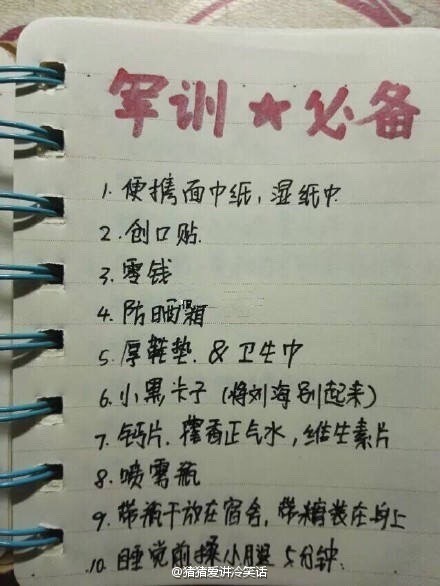 军训★必备
1. 便携面巾纸，湿纸巾
2. 创口贴.
3. 零钱
4. 防晒霜
5. 厚鞋垫. & 卫生巾
6. 小黑卡子（将刘海别起来）
7. 钙片. 藿香正气水，维生素片
8. 喷雾瓶
9. 带饼干放在宿舍，带糖装在身上
10. 睡觉前揉小腿 5分钟.
@猪猪爱讲冷笑话